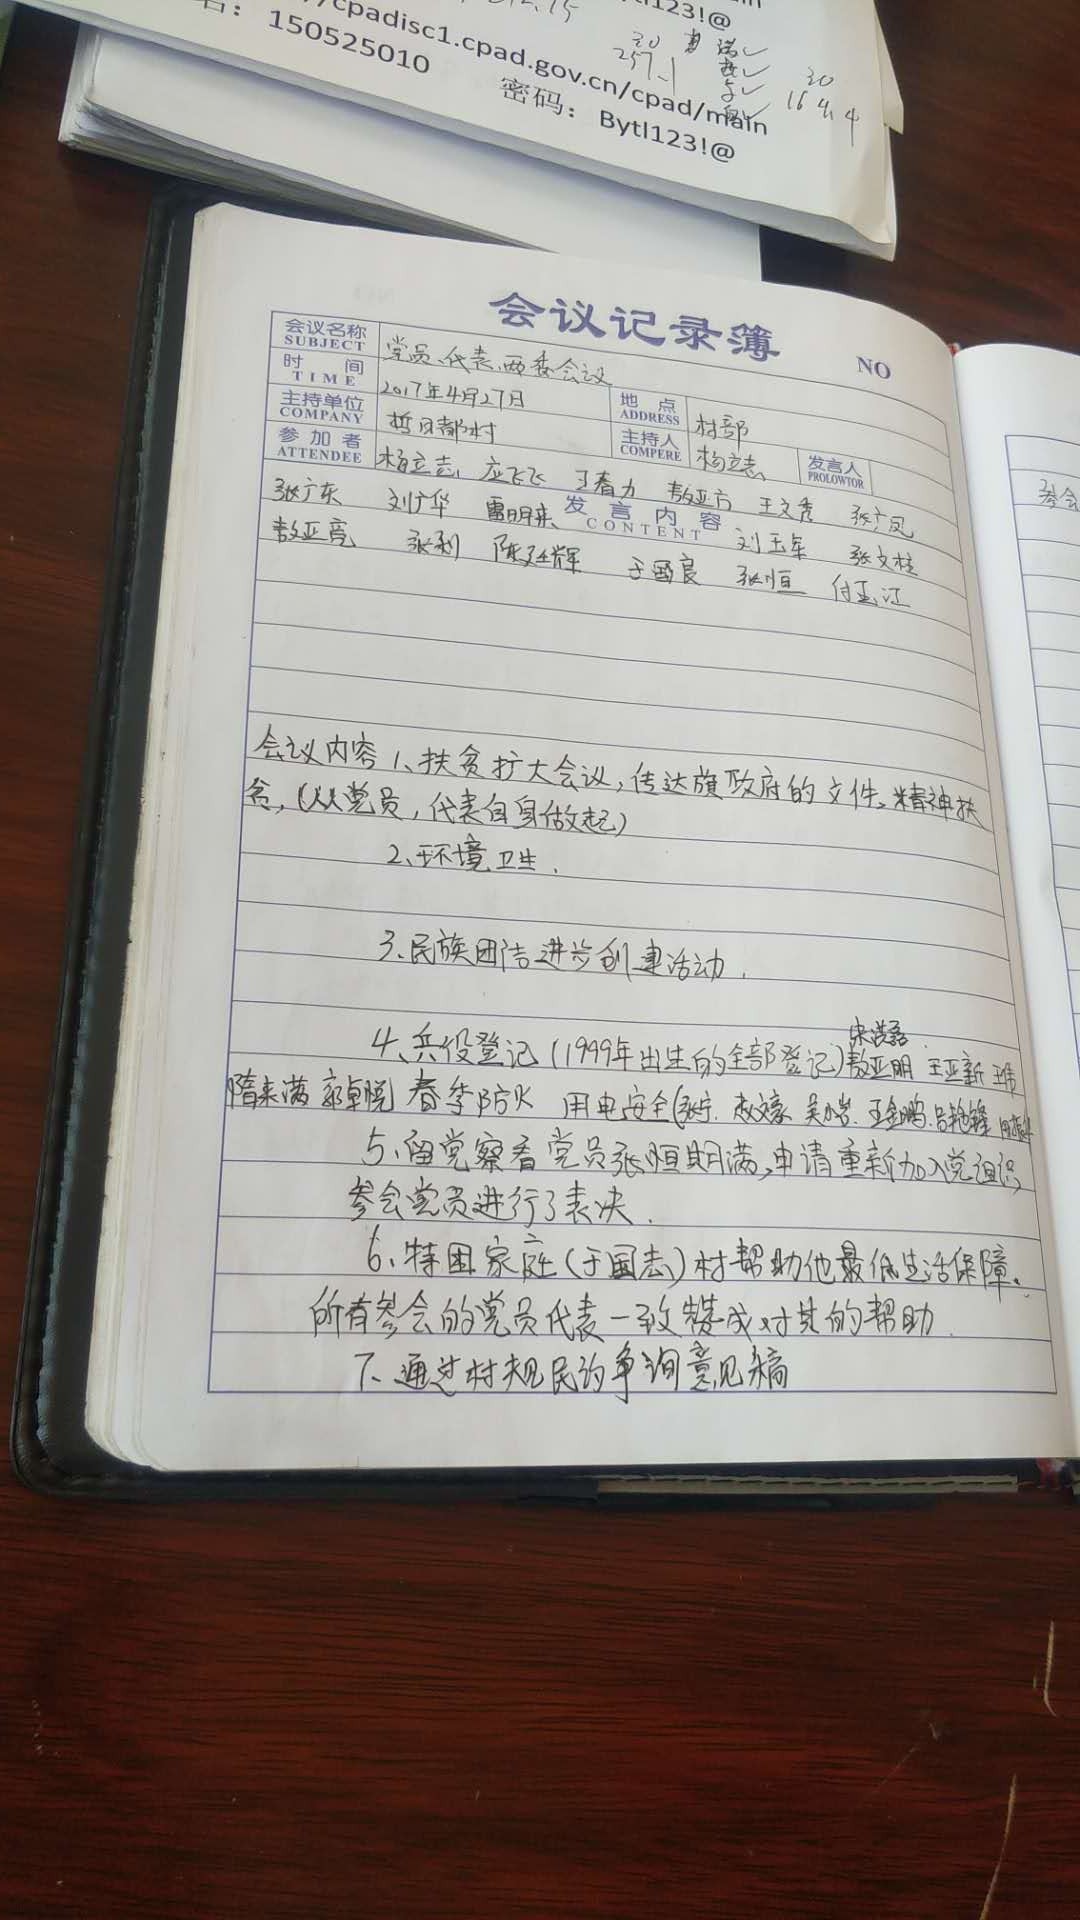 /cpadisc1.cpad.gov.cn/cpad/main
名：150525010
密码：Bytl123!@
Bytl123!@
20
257.1
20
164.4
会议记录簿
NO
会议名称 SUBJECT 党员、代表、两委会议
时间 TIME 2017年4月27日 地点 ADDRESS 村部
主持单位 COMPANY 哲日都村 主持人 COMPERE 杨立志 发言人 PROLOWTOR
参加者 ATTENDEE 杨立志 应飞飞 于春力 敖亚方 王文秀 张广凤
张广东 刘广华 雷明来 发言内容 CONTENT 刘玉军 张文柱
敖亚亮 张利 陈廷辉 于国良 张恒 付玉江
会议内容 1、扶贫扩大会议，传达旗政府的文件。精神扶
贫，（从党员，代表自身做起）
2、环境卫生.
3、民族团结进步创建活动.
宋洪磊
4、兵役登记（1999年出生的全部登记）敖亚明 王亚新 王伟
隋来满 郭卓悦 春季防火 用电安全（张宁. 赵文豪 吴小岩. 王金鹏. 吕艳锋
5、留党察看党员张恒期满，申请重新加入党组织，
参会党员进行了表决.
6、特困家庭（于国志）村帮助他最低生活保障。
所有参会的党员代表一致赞成对其的帮助.
7、通过村规民约争询意见稿
参会